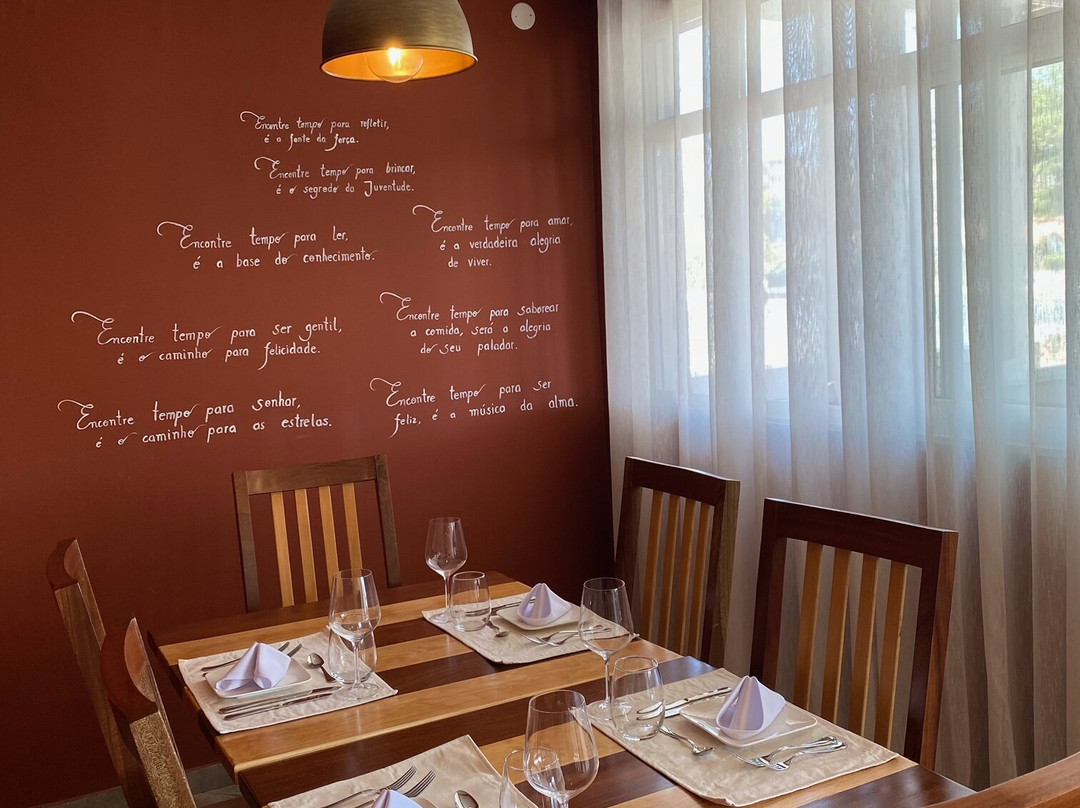 Encontre tempo para refletir,
é a fonte da força.
Encontre tempo para brincar,
é o segredo da Juventude.
Encontre tempo para ler,
é a base do conhecimento.
Encontre tempo para amar,
é a verdadeira alegria
de viver.
Encontre tempo para ser gentil,
é o caminho para felicidade.
Encontre tempo para saborear
a comida, será a alegria
do seu paladar.
Encontre tempo para sonhar,
é o caminho para as estrelas.
Encontre tempo para ser
feliz, é a música da alma.